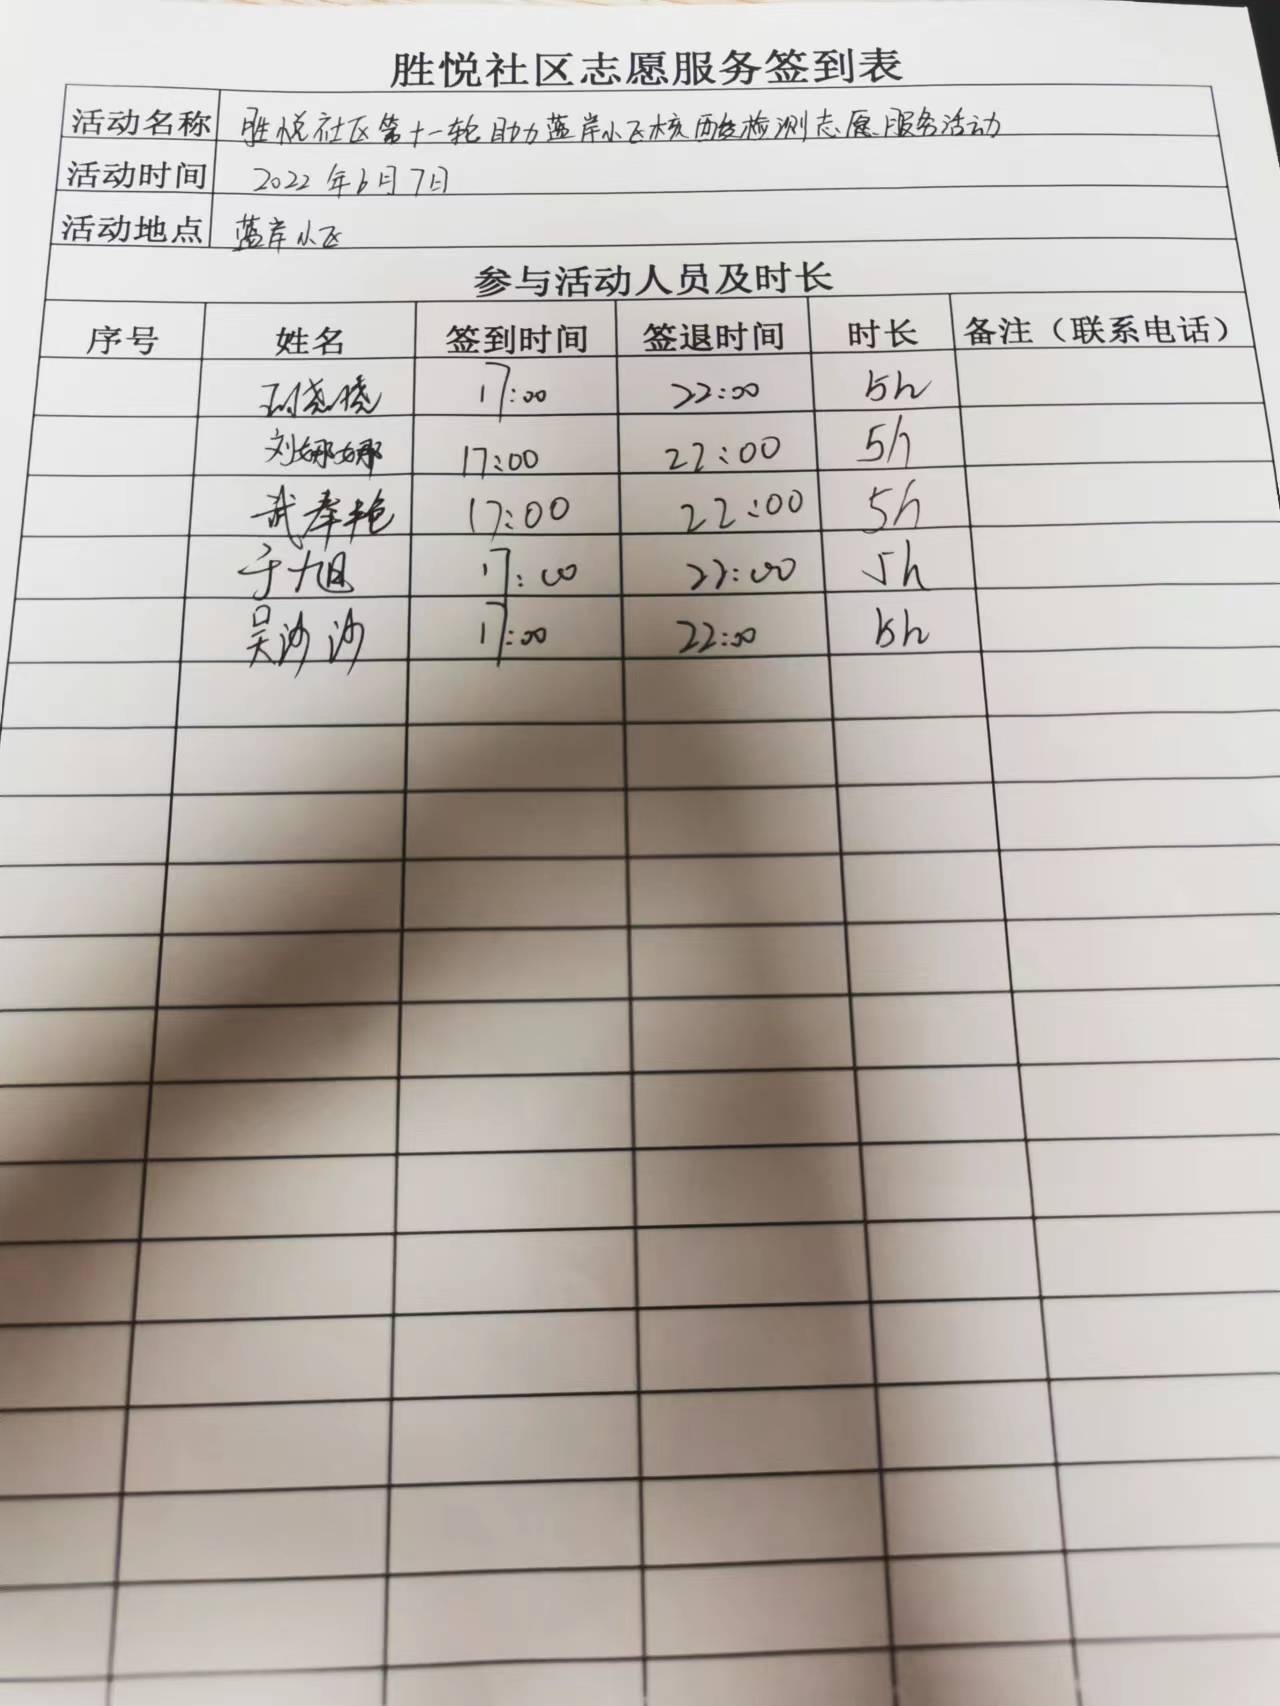 胜悦社区志愿服务签到表
活动名称 胜悦社区第十一轮助力蓝岸小飞核酸检测志愿服务活动
活动时间 2022年6月7日
活动地点 蓝岸小飞
参与活动人员及时长
序号 姓名 签到时间 签退时间 时长 备注（联系电话）
17:00 22:00 5h
刘娜娜 17:00 22:00 5h
武春艳 17:00 22:00 5h
于旭 17:00 22:00 5h
吴沙沙 17:00 22:00 5h